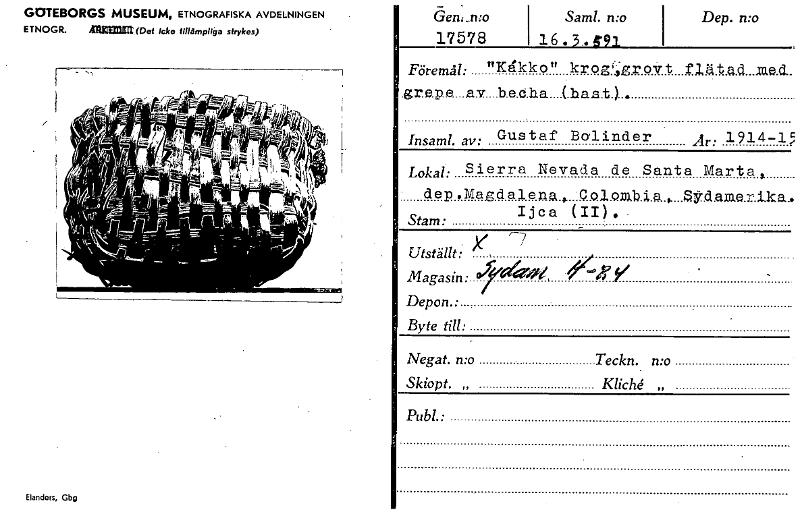 GÖTEBORGS MUSEUM, ETNOGRAFISKA AVDELNINGEN
ETNOGR. (Det icke tillämpliga strykes)
Elanders, Gbg
Gen. n:o Saml. n:o Dep. n:o
17578 16.3.591
Föremål: "Kákko" krog, grovt flätad med
grepe av becha (bast).
Insaml. av: Gustaf Bolinder År: 1914-15
Lokal: Sierra Nevada de Santa Marta,
dep. Magdalena, Colombia, Sydamerika.
Stam: Ijca (II).
Utställt: X
Magasin: Sydam. 4-24
Depon.:
Byte till:
Negat. n:o Teckn. n:o
Skiopt. „ Kliché „
Publ.: